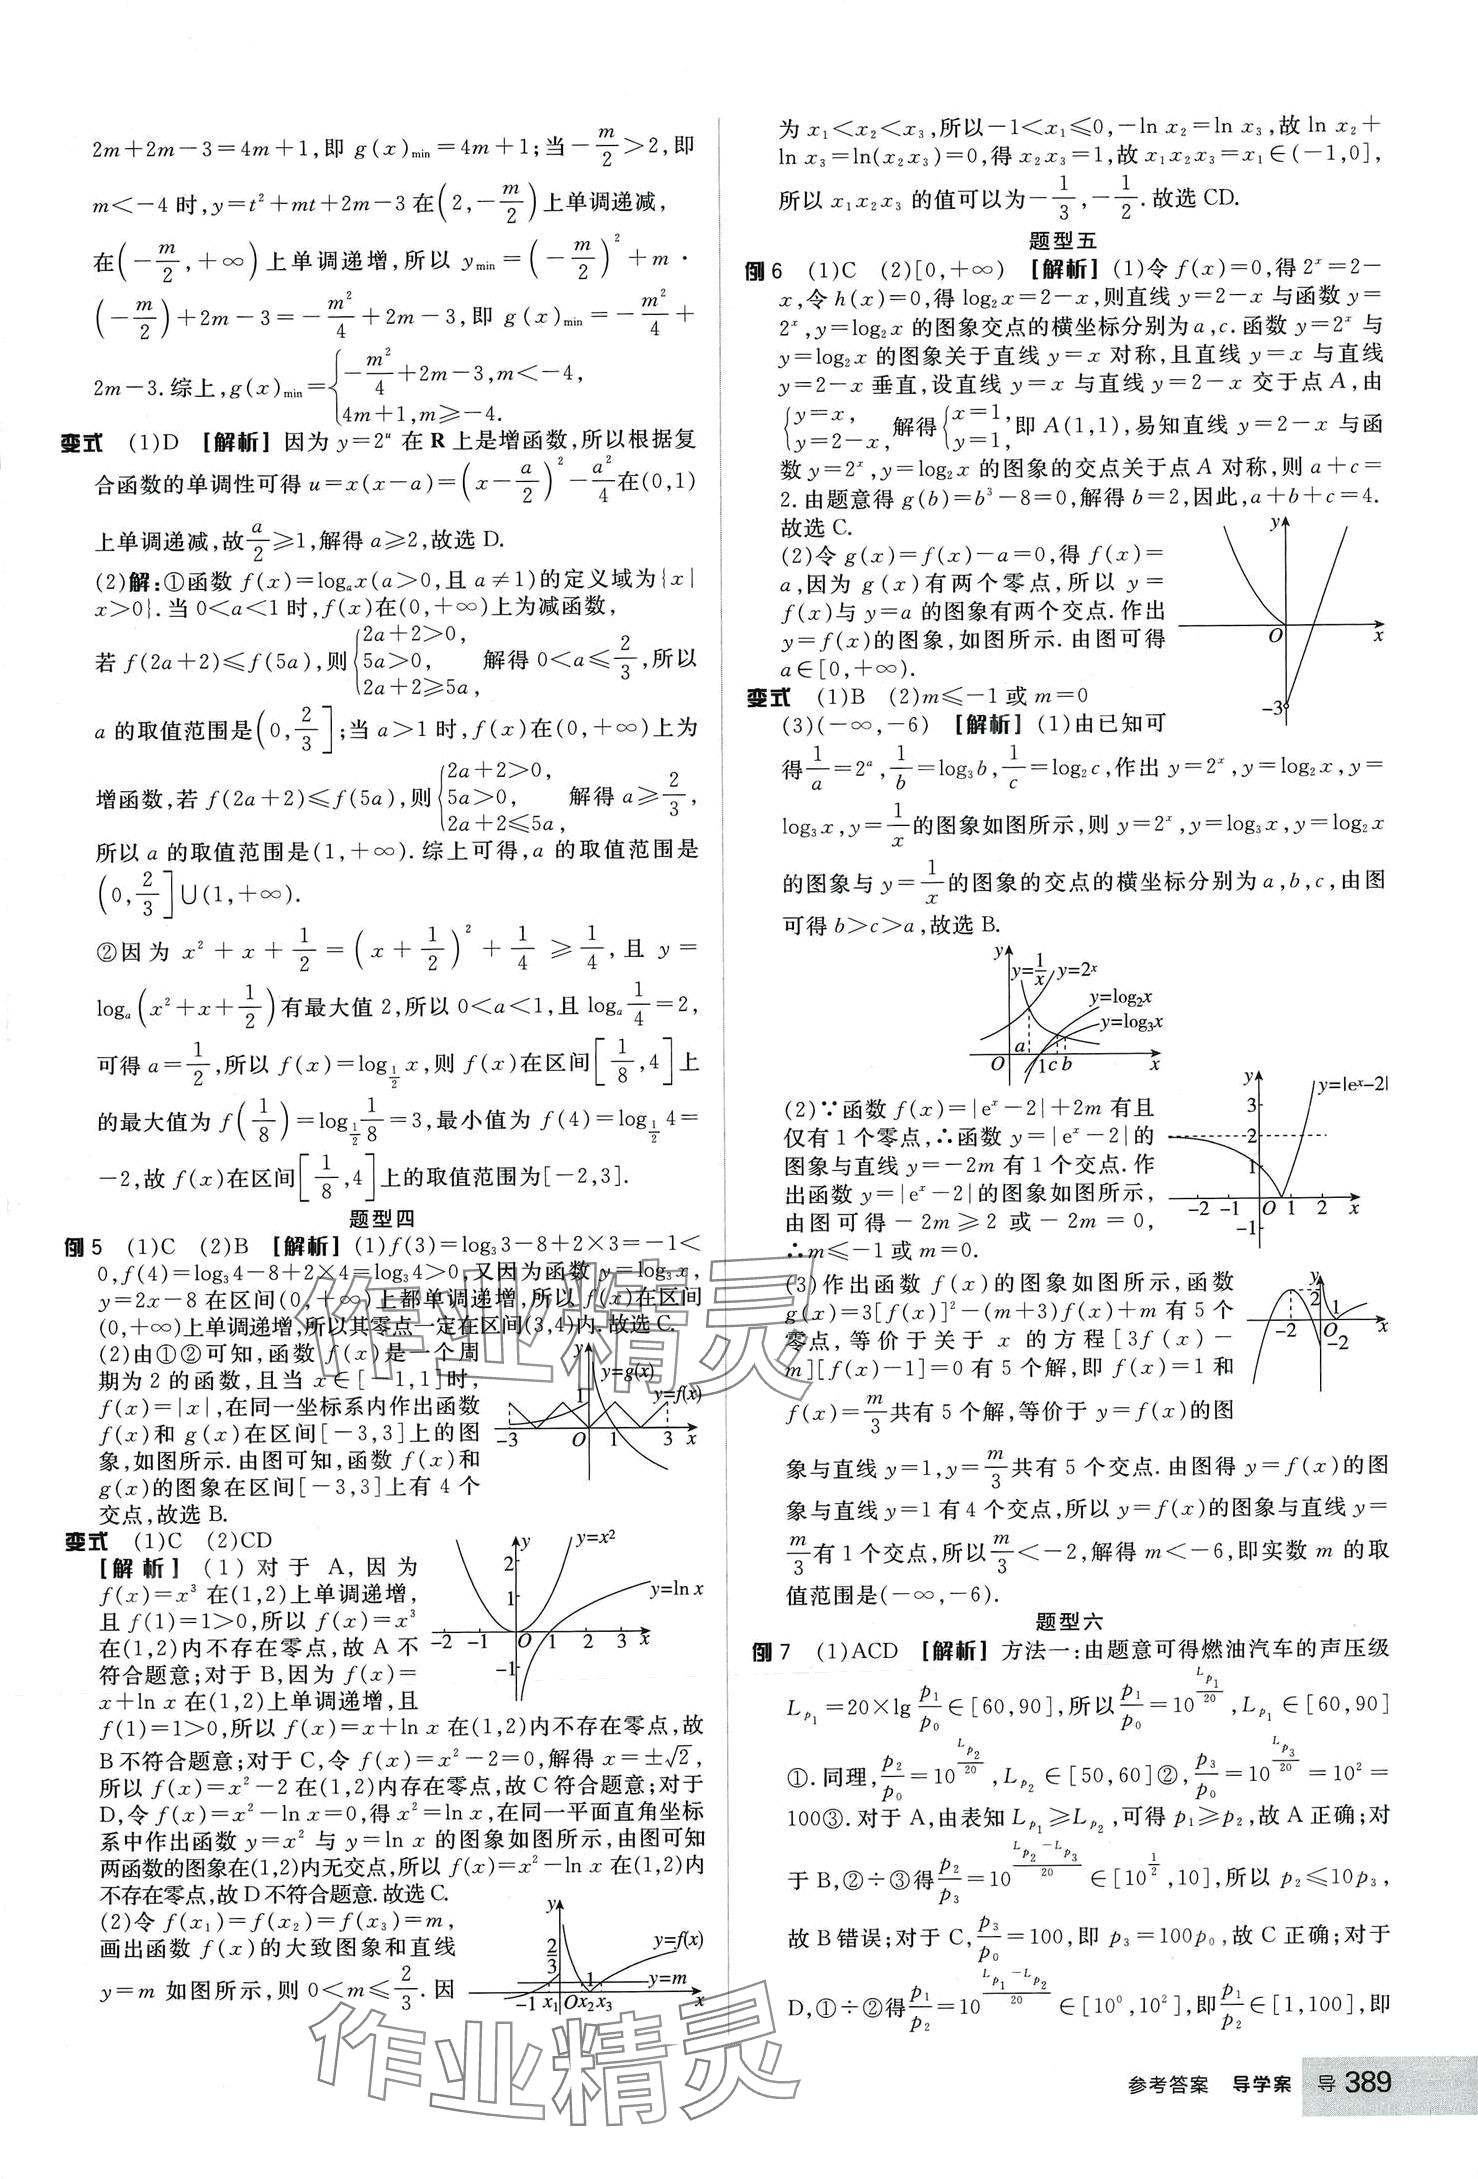 2m+2m-3=4m+1,即 g(x)min=4m+1;当-m/2>2,即
m<-4 时,y=t²+mt+2m-3 在(2,-m/2)上单调递减,
在(-m/2,+∞)上单调递增,所以 ymin=(-m/2)²+m·
(-m/2)+2m-3=-m²/4+2m-3,即 g(x)min=-m²/4+
2m-3.综上,g(x)min={-m²/4+2m-3,m<-4,
4m+1,m≥-4.
变式 (1)D [解析] 因为 y=2ᵘ 在 R 上是增函数,所以根据复
合函数的单调性可得 u=x(x-a)=(x-a/2)²-a²/4在(0,1)
上单调递减,故a/2≥1,解得 a≥2,故选 D.
(2)解:①函数 f(x)=logₐx(a>0,且 a≠1)的定义域为{x|
x>0}.当 0<a<1 时,f(x)在(0,+∞)上为减函数,
若 f(2a+2)≤f(5a),则{2a+2>0,
5a>0,
2a+2≥5a,
解得 0<a≤2/3,所以
a 的取值范围是(0,2/3];当 a>1 时,f(x)在(0,+∞)上为
增函数,若 f(2a+2)≤f(5a),则{2a+2>0,
5a>0,
2a+2≤5a,
解得 a≥2/3,
所以 a 的取值范围是(1,+∞).综上可得,a 的取值范围是
(0,2/3]∪(1,+∞).
②因为 x²+x+1/2=(x+1/2)²+1/4≥1/4,且 y=
logₐ(x²+x+1/2)有最大值 2,所以 0<a<1,且 logₐ1/4=2,
可得 a=1/2,所以 f(x)=log_{1/2}x,则 f(x)在区间[1/8,4]上
的最大值为 f(1/8)=log_{1/2}1/8=3,最小值为 f(4)=log_{1/2}4=
-2,故 f(x)在区间[1/8,4]上的取值范围为[-2,3].
题型四
例 5 (1)C (2)B [解析] (1)f(3)=log₃3-8+2×3=-1<
0,f(4)=log₃4-8+2×4=log₃4>0,又因为函数 y=log₃x,
y=2x-8 在区间(0,+∞)上都单调递增,所以 f(x)在区间
(0,+∞)上单调递增,所以其零点一定在区间(3,4)内.故选C.
(2)由①②可知,函数 f(x)是一个周
期为 2 的函数,且当 x∈[-1,1]时,
f(x)=|x|,在同一坐标系内作出函数
f(x)和 g(x)在区间[-3,3]上的图
象,如图所示.由图可知,函数 f(x)和
g(x)的图象在区间[-3,3]上有 4 个
交点,故选 B.
y
y=g(x)
1
y=f(x)
-3 O 1 3 x
变式 (1)C (2)CD
[解析] (1)对于 A,因为
f(x)=x³ 在(1,2)上单调递增,
且 f(1)=1>0,所以 f(x)=x³
在(1,2)内不存在零点,故 A 不
符合题意;对于 B,因为 f(x)=
x+ln x 在(1,2)上单调递增,且
f(1)=1>0,所以 f(x)=x+ln x 在(1,2)内不存在零点,故
B 不符合题意;对于 C,令 f(x)=x²-2=0,解得 x=±√2,
所以 f(x)=x²-2 在(1,2)内存在零点,故 C 符合题意;对于
D,令 f(x)=x²-ln x=0,得 x²=ln x,在同一平面直角坐标
系中作出函数 y=x² 与 y=ln x 的图象如图所示,由图可知
两函数的图象在(1,2)内无交点,所以 f(x)=x²-ln x 在(1,2)内
不存在零点,故 D 不符合题意.故选 C.
y y=x²
2
1
y=ln x
-2 -1 O 1 2 3 x
-1
(2)令 f(x₁)=f(x₂)=f(x₃)=m,
画出函数 f(x)的大致图象和直线
y=m 如图所示,则 0<m≤2/3.因
y
2/3
y=f(x)
1 y=m
-1 x₁ O x₂ x₃ x
为 x₁<x₂<x₃,所以-1<x₁≤0,-ln x₂=ln x₃,故 ln x₂+
ln x₃=ln(x₂x₃)=0,得 x₂x₃=1,故 x₁x₂x₃=x₁∈(-1,0],
所以 x₁x₂x₃ 的值可以为-1/3,-1/2.故选 CD.
题型五
例 6 (1)C (2)[0,+∞) [解析] (1)令 f(x)=0,得 2ˣ=2-
x,令 h(x)=0,得 log₂x=2-x,则直线 y=2-x 与函数 y=
2ˣ,y=log₂x 的图象交点的横坐标分别为 a,c.函数 y=2ˣ 与
y=log₂x 的图象关于直线 y=x 对称,且直线 y=x 与直线
y=2-x 垂直,设直线 y=x 与直线 y=2-x 交于点 A,由
{y=x,
y=2-x,
解得{x=1,
y=1,
即 A(1,1),易知直线 y=2-x 与函
数 y=2ˣ,y=log₂x 的图象的交点关于点 A 对称,则 a+c=
2.由题意得 g(b)=b³-8=0,解得 b=2,因此,a+b+c=4.
故选 C.
(2)令 g(x)=f(x)-a=0,得 f(x)=
a,因为 g(x)有两个零点,所以 y=
f(x)与 y=a 的图象有两个交点.作出
y=f(x)的图象,如图所示.由图可得
a∈[0,+∞).
y
O x
-3
变式 (1)B (2)m≤-1 或 m=0
(3)(-∞,-6) [解析] (1)由已知可
得1/a=2ᵃ,1/b=log₃b,1/c=log₂c,作出 y=2ˣ,y=log₂x,y=
log₃x,y=1/x的图象如图所示,则 y=2ˣ,y=log₃x,y=log₂x
的图象与 y=1/x的图象的交点的横坐标分别为 a,b,c,由图
可得 b>c>a,故选 B.
y
y=1/x y=2ˣ
y=log₂x
y=log₃x
O a 1 c b x
(2)∵函数 f(x)=|eˣ-2|+2m 有且
仅有 1 个零点,∴函数 y=|eˣ-2|的
图象与直线 y=-2m 有 1 个交点.作
出函数 y=|eˣ-2|的图象如图所示,
由图可得-2m≥2 或-2m=0,
∴m≤-1 或 m=0.
y y=|eˣ-2|
3
2
1
-2 -1 O 1 2 x
-1
(3)作出函数 f(x)的图象如图所示,函数
g(x)=3[f(x)]²-(m+3)f(x)+m 有 5 个
零点,等价于关于 x 的方程[3f(x)-
m][f(x)-1]=0 有 5 个解,即 f(x)=1 和
f(x)=m/3共有 5 个解,等价于 y=f(x)的图
象与直线 y=1,y=m/3共有 5 个交点.由图得 y=f(x)的图
象与直线 y=1 有 4 个交点,所以 y=f(x)的图象与直线 y=
m/3有 1 个交点,所以m/3<-2,解得 m<-6,即实数 m 的取
值范围是(-∞,-6).
y
2
-2 O x
-2
题型六
例 7 (1)ACD [解析] 方法一:由题意可得燃油汽车的声压级
L_{p₁}=20×lg p₁/p₀∈[60,90],所以p₁/p₀=10^{L_{p₁}/20},L_{p₁}∈[60,90]
①.同理,p₂/p₀=10^{L_{p₂}/20},L_{p₂}∈[50,60]②,p₃/p₀=10^{L_{p₃}/20}=10²=
100③.对于 A,由表知 L_{p₁}≥L_{p₂},可得 p₁≥p₂,故 A 正确;对
于 B,②÷③得p₂/p₃=10^{(L_{p₂}-L_{p₃})/20}∈[10^{1/2},10],所以 p₂≤10p₃,
故 B 错误;对于 C,p₃/p₀=100,即 p₃=100p₀,故 C 正确;对于
D,①÷②得p₁/p₂=10^{(L_{p₁}-L_{p₂})/20}∈[10⁰,10²],即p₁/p₂∈[1,100],即
作业精灵
作业精灵
参考答案 导学案 导 389